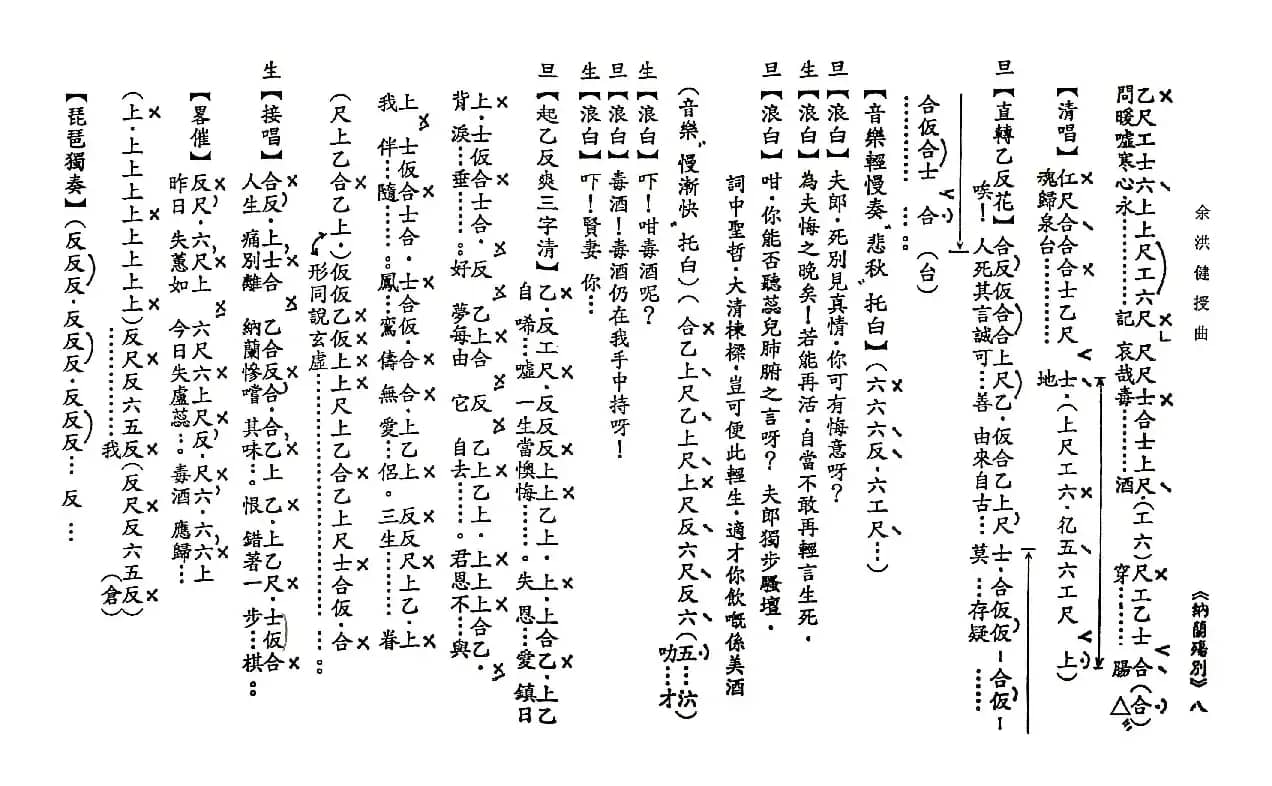 余洪健授曲
《納蘭殤別》八
乙尺工士六上上尺工六尺 尺尺士合士上尺·(工六)尺工乙士 合(合)
問暖噓寒心永………記 哀哉毒………酒 穿………腸
【清唱】仜尺合合合士乙尺 士·(上尺工六·伬五六工尺 上)
魂歸泉台……… 地
旦【直轉乙反花】合反仮合合上尺乙·仮合乙上尺 士·合仮仮-合仮-
唉！人死其言誠可…善 由來自古…莫 …存疑………
合仮合士 合(台)
………… …。
【音樂輕慢奏"悲秋"托白】(六六六反·六工尺…)
旦【浪白】夫郎·死別見真情·你可有悔意呀？
生【浪白】為夫悔之晚矣！若能再活·自當不敢再輕言生死·
旦【浪白】咁·你能否聽蕊兒肺腑之言呀？ 夫郎獨步騷壇·
詞中聖哲·大清棟樑·豈可便此輕生·適才你飲嘅係美酒
(音樂"慢漸快"托白)(合乙上尺乙上尺上尺反六尺反六(五…六)
叻…才
生【浪白】吓！咁毒酒呢？
旦【浪白】毒酒！毒酒仍在我手中持呀！
生【浪白】吓！賢妻 你…
旦【起乙反爽三字清】乙·反工尺·反反反上上乙上·上·上合乙·上乙
自 唏…噓 一生當懊悔……。失 恩…愛 鎮日
上·士仮合士合·反 乙上合 反 乙上乙上·上上上合乙·
背 淚…垂……。好 夢每由 它 自去……。君恩不…與
上 士仮合士合·士合仮·合 合·上乙上 反反尺上乙·上
我 伴…隨……。鳳…鸞 儔 無 愛…侶。三生………眷
(尺上乙合乙上·)仮仮乙仮上上尺上乙合乙上尺士合仮·合
形同說玄虛………………………。
生【接唱】合反·上士合 乙合反合·合乙上 乙·上乙尺·士仮合
人生 痛別離 納蘭慘嚐 其味…。恨 錯著一 步…棋。。
【畧催】反尺·六尺上 六尺六上尺反·尺六·六六上
昨日 失蕙如 今日失盧蕊…。毒酒 應歸…
(上·上上上上上上上上)反尺反六五反(反尺反六五反)
…………………我 (倉)
【琵琶獨奏】(反反反·反反反·反反反… 反 …